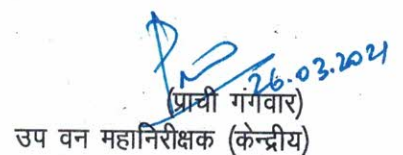 26.03.2021
(प्राची गंगवार)
उप वन महानिरीक्षक (केन्द्रीय)